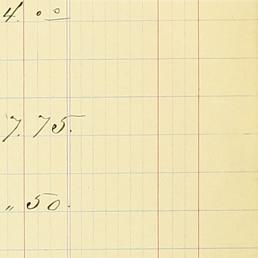 4. 00
7. 75.
" 50.